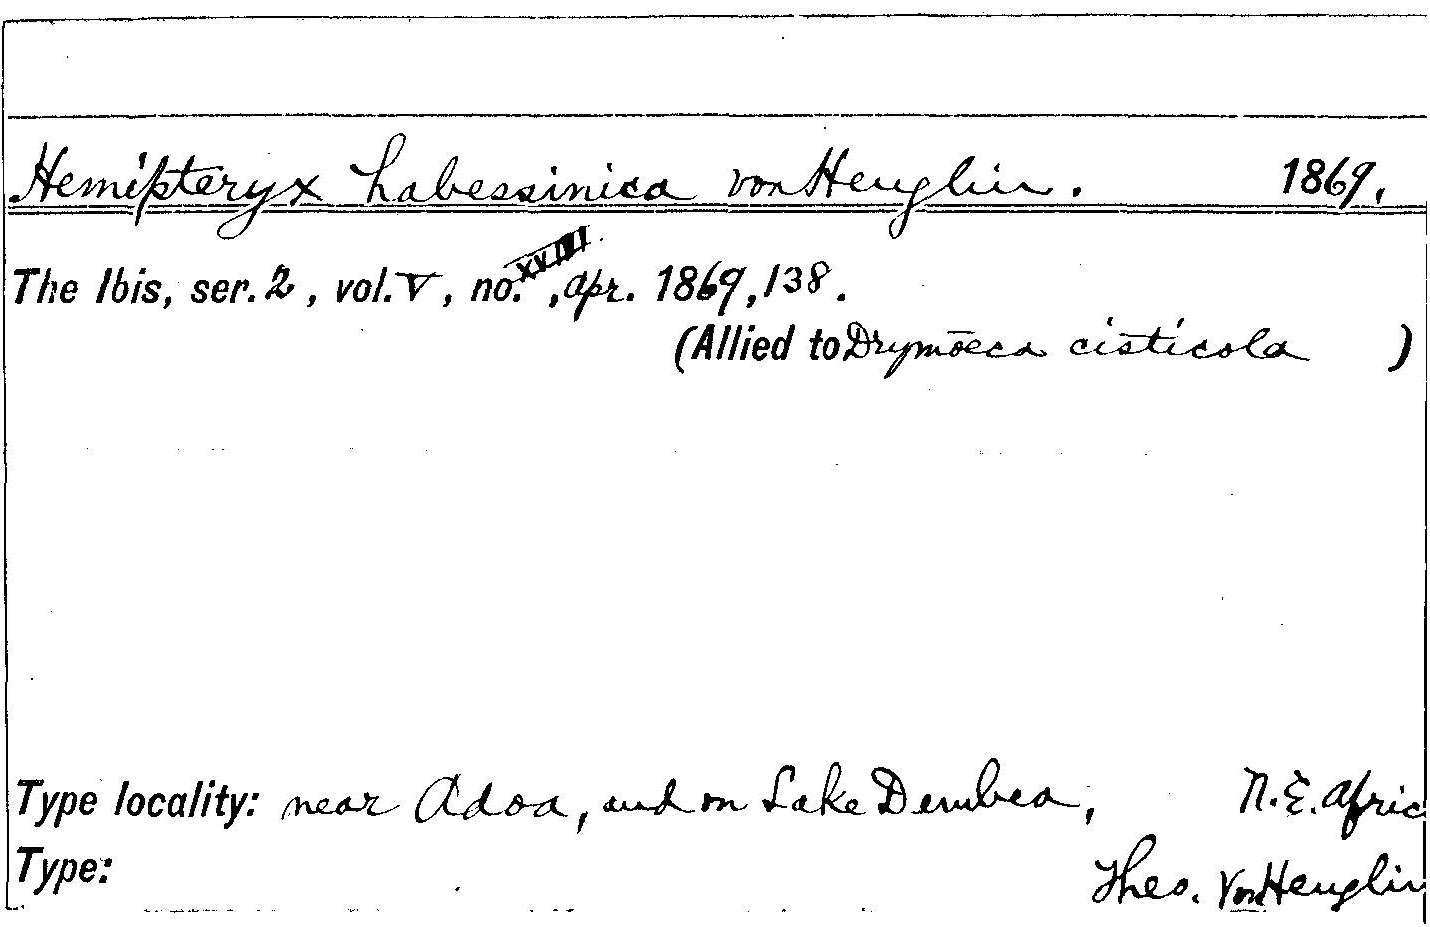 Hemipteryx habessinica von Heuglin. 1869.
The Ibis, ser. 2, vol. V, no. XVIII, apr. 1869, 138.
(Allied to Drymōeca cisticola )
Type locality: near Adoa, and on Lake Dembea, N.E. Afric
Type: Theo. von Heuglin